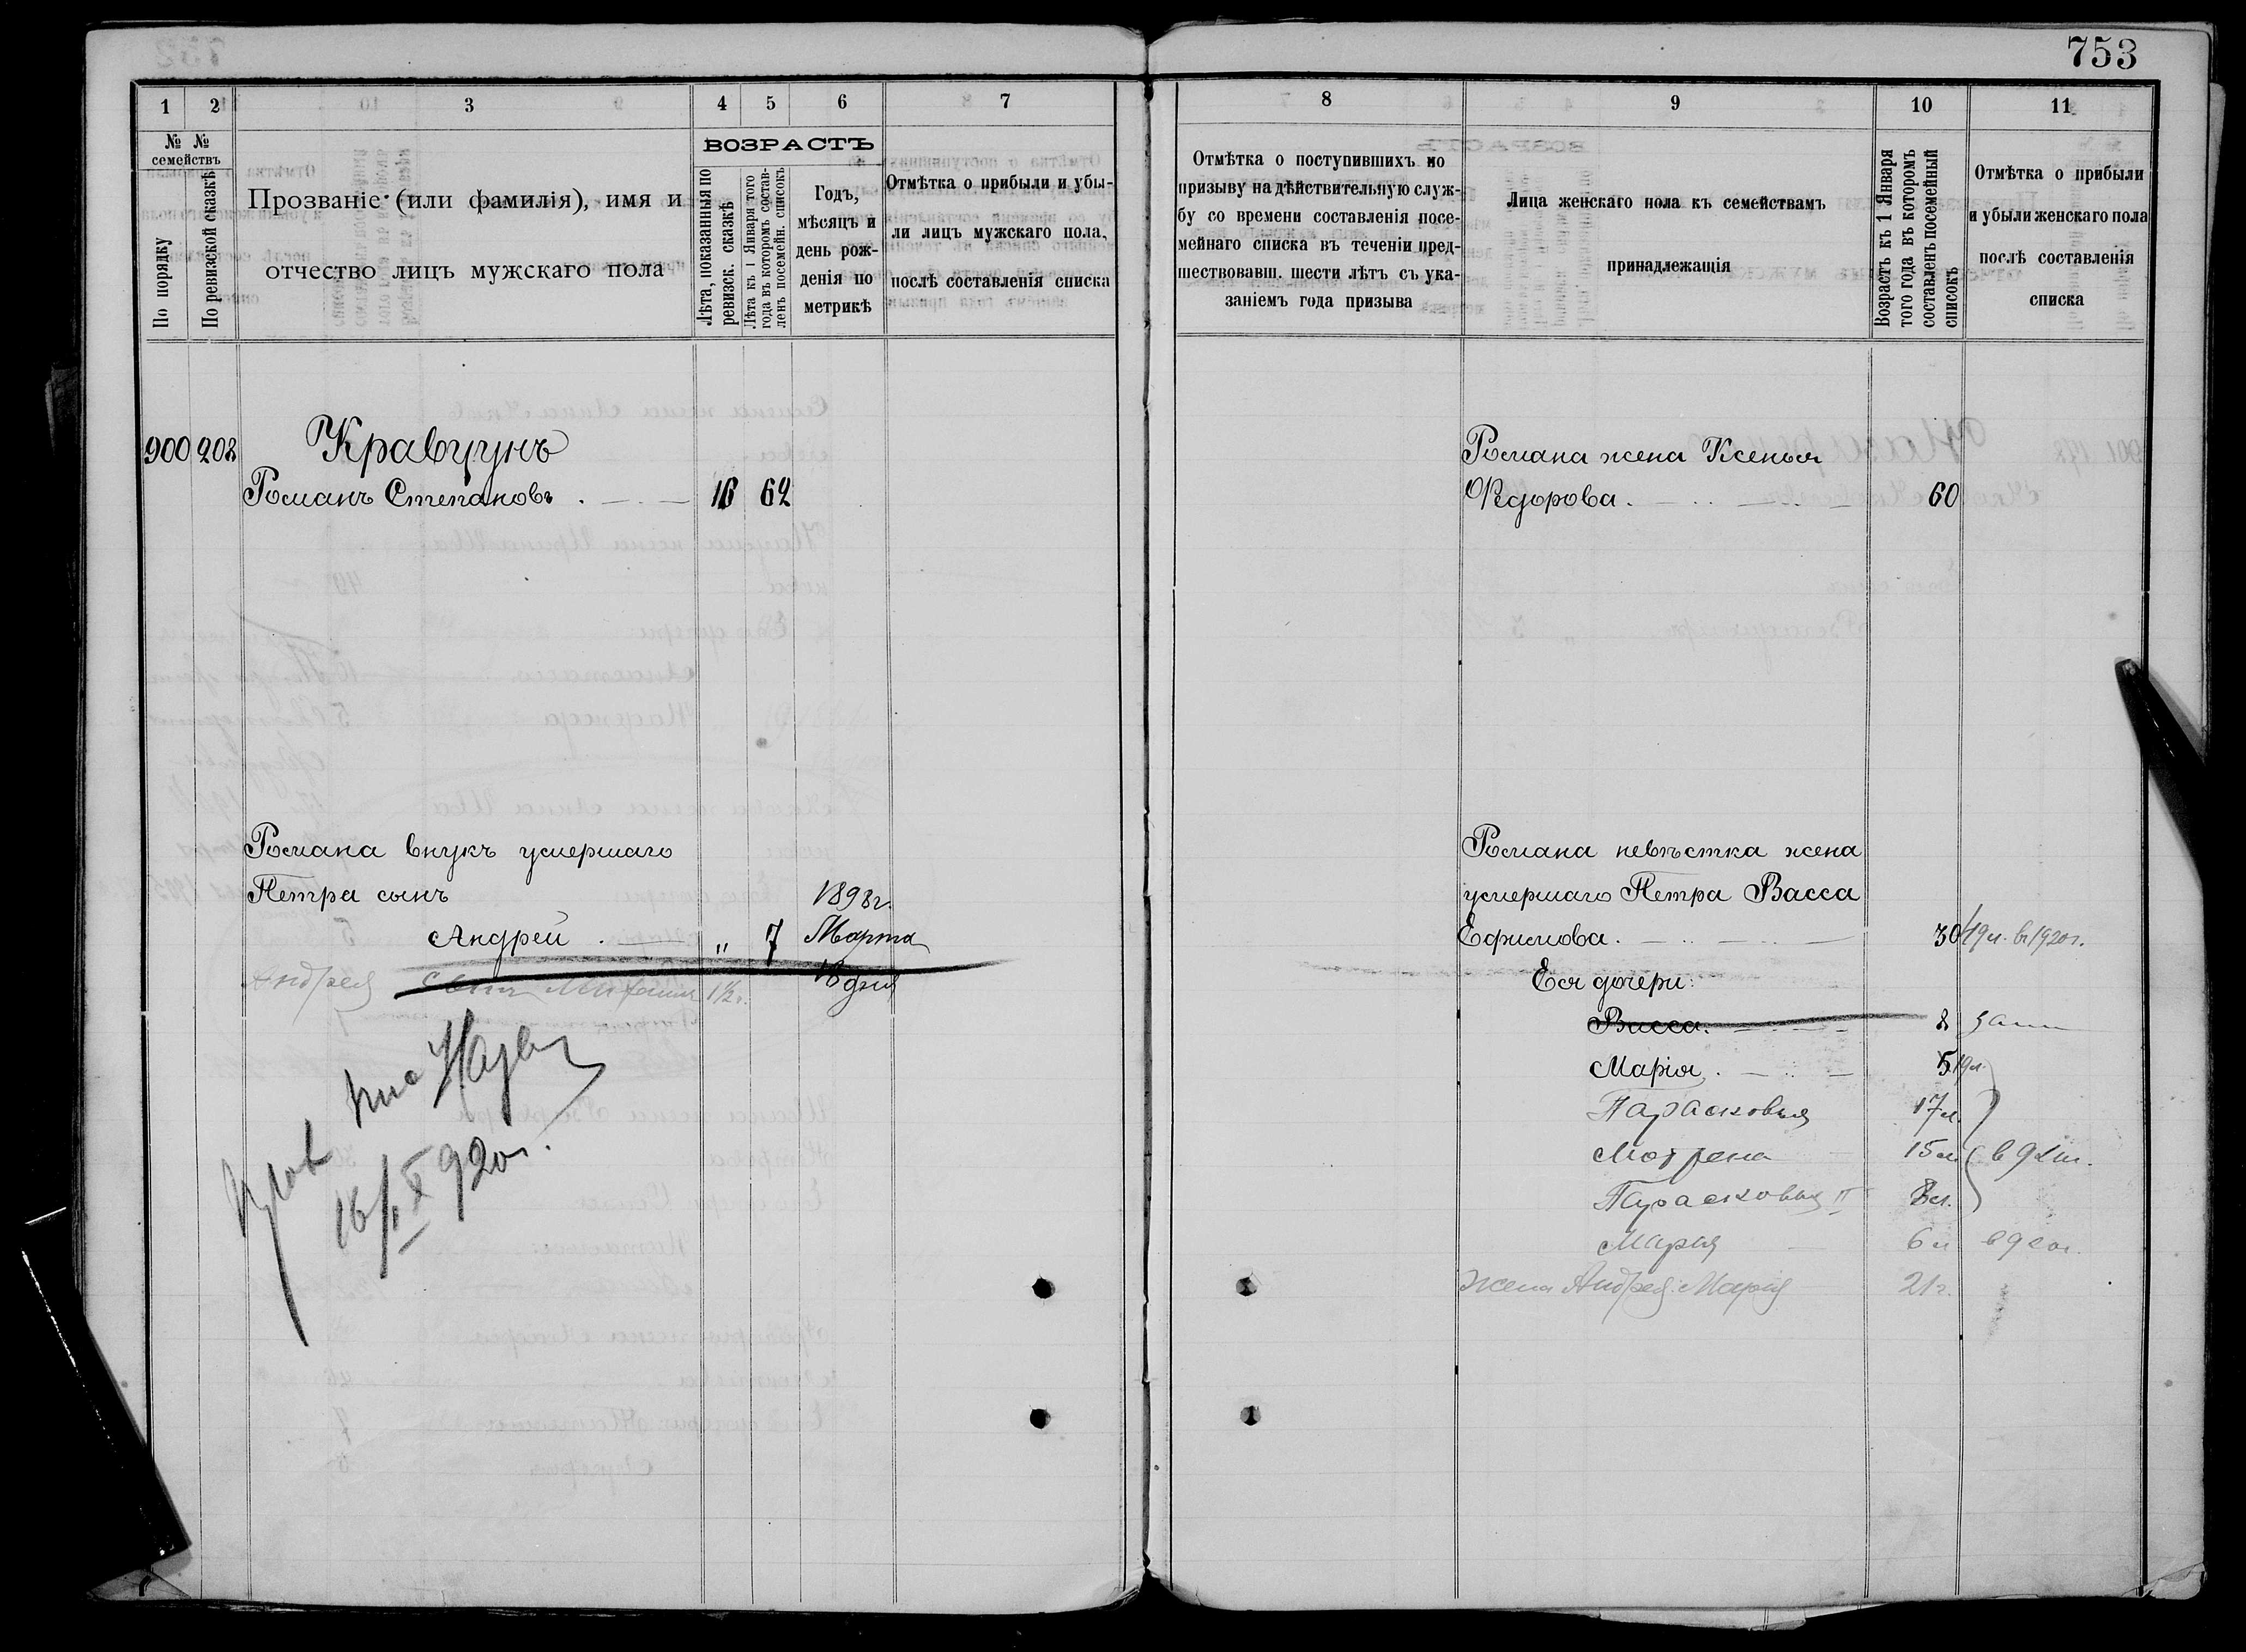 753
1 2 3 4 5 6 7
№ № семействъ
По порядку
По ревизской сказкѣ
Прозваніе (или фамилія), имя и
отчество лицъ мужскаго пола
ВОЗРАСТЪ
Лѣта, показанныя по
ревизск. сказкѣ
Лѣта къ 1 Января того
года въ которомъ состав-
ленъ посемейн. списокъ
Годъ,
мѣсяцъ и
день рож-
денія по
метрикѣ
Отмѣтка о прибыли и убы-
ли лицъ мужскаго пола,
послѣ составленія списка
900 208 Кравцунъ
Романъ Степановъ 16 62
Романа внукъ умершаго
Петра сынъ 1898г.
Андрей „ 7 Марта
18 дня
Андрея сынъ 1½г.
16/IX 920г.
8 9 10 11
Отмѣтка о поступившихъ по
призыву на дѣйствительную служ-
бу со времени составленія посе-
мейнаго списка въ теченіи пред-
шествовавш. шести лѣтъ съ ука-
заніемъ года призыва
Лица женскаго пола къ семействамъ
принадлежащія
Возрастъ къ 1 Января
того года въ которомъ
составленъ посемейный
списокъ
Отмѣтка о прибыли
и убыли женскаго пола
послѣ составленія
списка
Романа жена Ксенья
Ѳедорова. 60
Романа невѣстка жена
умершаго Петра Васса
Ефимова. 30 49л. в 1920г.
Ея дочери:
Васса. 8 зам
Марія. 5 19л.
Парасковья 17л.
Мотрена 15л. в 92
Парасковья II 8л.
Марья 6л в 920г.
Жена Андрея Марія 21г.